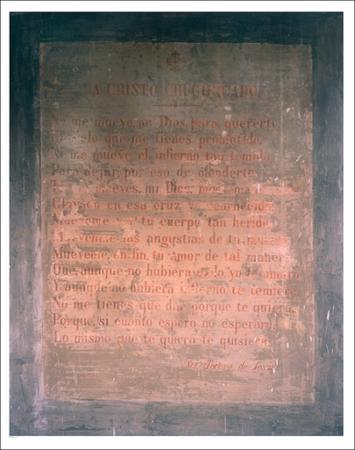 A CRISTO CRUCIFICADO
No me mueve, mi Dios, para quererte
lo que me tienes prometido,
me mueve el infierno tan temido
Para dejar por eso de ofenderte.
mueves, mi Dios,
Clavado en esa cruz y
Muéveme tu cuerpo tan herido
las angustias de tu
Muéveme, en fin, tu amor de tal manera
Que, aunque no hubiera cielo, yo te amara
Y aunque no hubiera infierno te temiera
No me tienes que dar porque te quiera,
Porque, si cuanto espero no esperara,
Lo mismo que te quiero te quisiera.
Teresa de Jesús